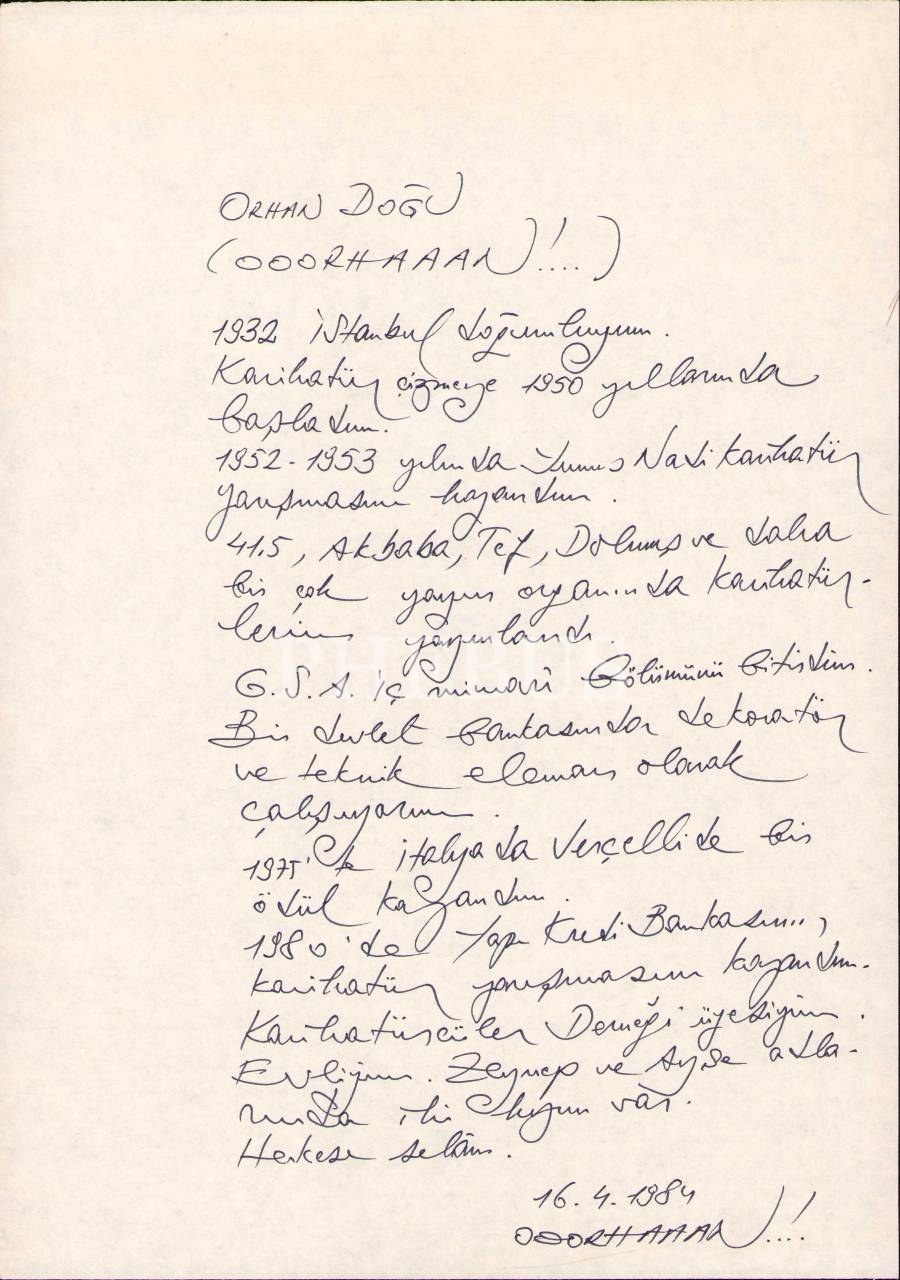 ORHAN DOĞU
(OOORHAAAN!....)
1932 İstanbul doğumluyum.
Karikatür çizmeye 1950 yıllarında
başladım.
1952-1953 yılında Yunus Nadi karikatür
yarışmasını kazandım.
41.5, Akbaba, Tef, Dolmuş ve daha
bir çok yayın organında karikatür-
lerim yayınlandı.
PHEBUS
G.S.A. iç mimari bölümünü bitirdim.
Bir devlet bankasında dekoratör
ve teknik eleman olarak
çalışıyorum.
1975'te italyada Verçellide bir
ödül kazandım.
1980'de Yapı Kredi Bankasının,
karikatür yarışmasını kazandım.
Karikatürcüler Derneği üyesiyim.
Evliyim. Zeynep ve Ayşe adla-
rında iki kızım var.
Herkese selâm.
16.4.1984
OOORHAAAN!....